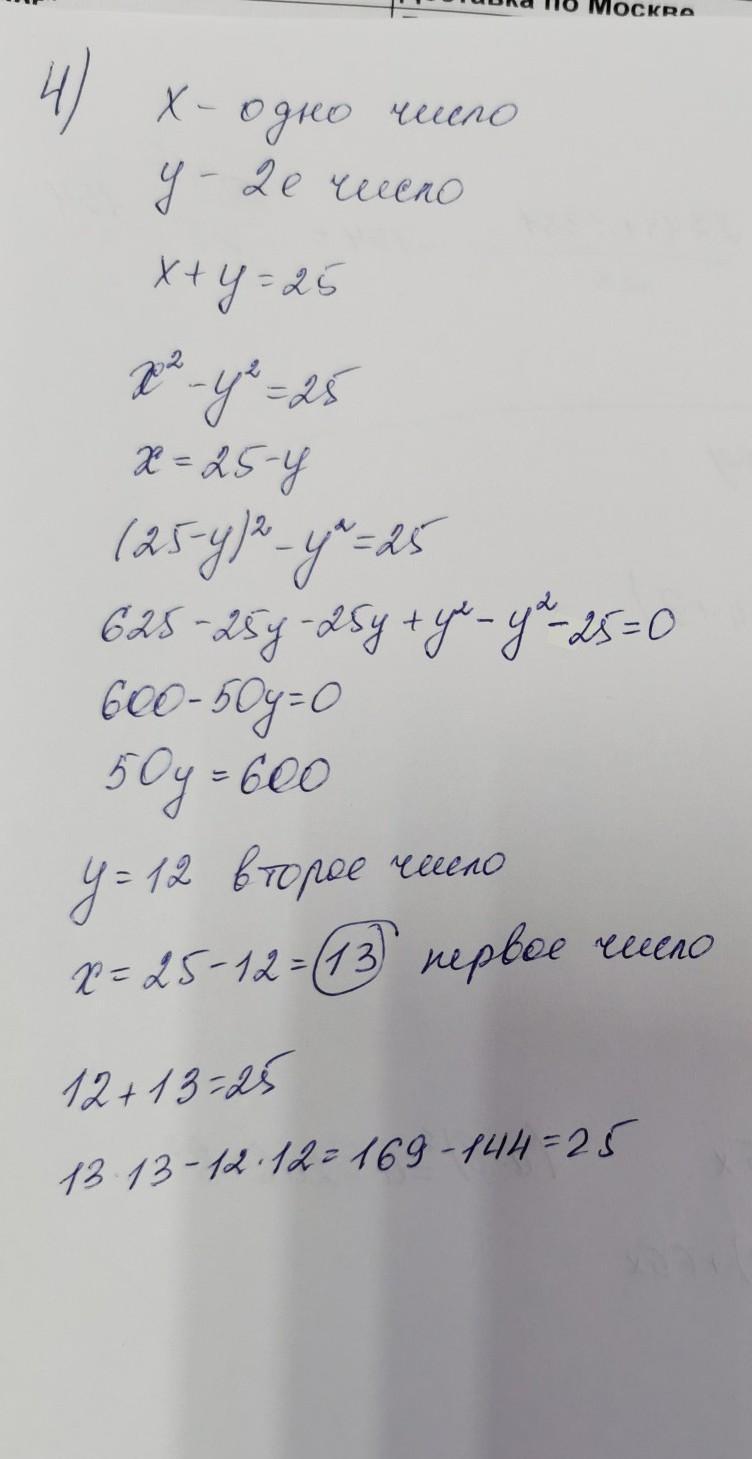 по Москве
4) x - одно число
y - 2е число
x + y = 25
x² - y² = 25
x = 25 - y
(25 - y)² - y² = 25
625 - 25y - 25y + y² - y² - 25 = 0
600 - 50y = 0
50y = 600
y = 12 второе число
x = 25 - 12 = 13 первое число
12 + 13 = 25
13 · 13 - 12 · 12 = 169 - 144 = 25